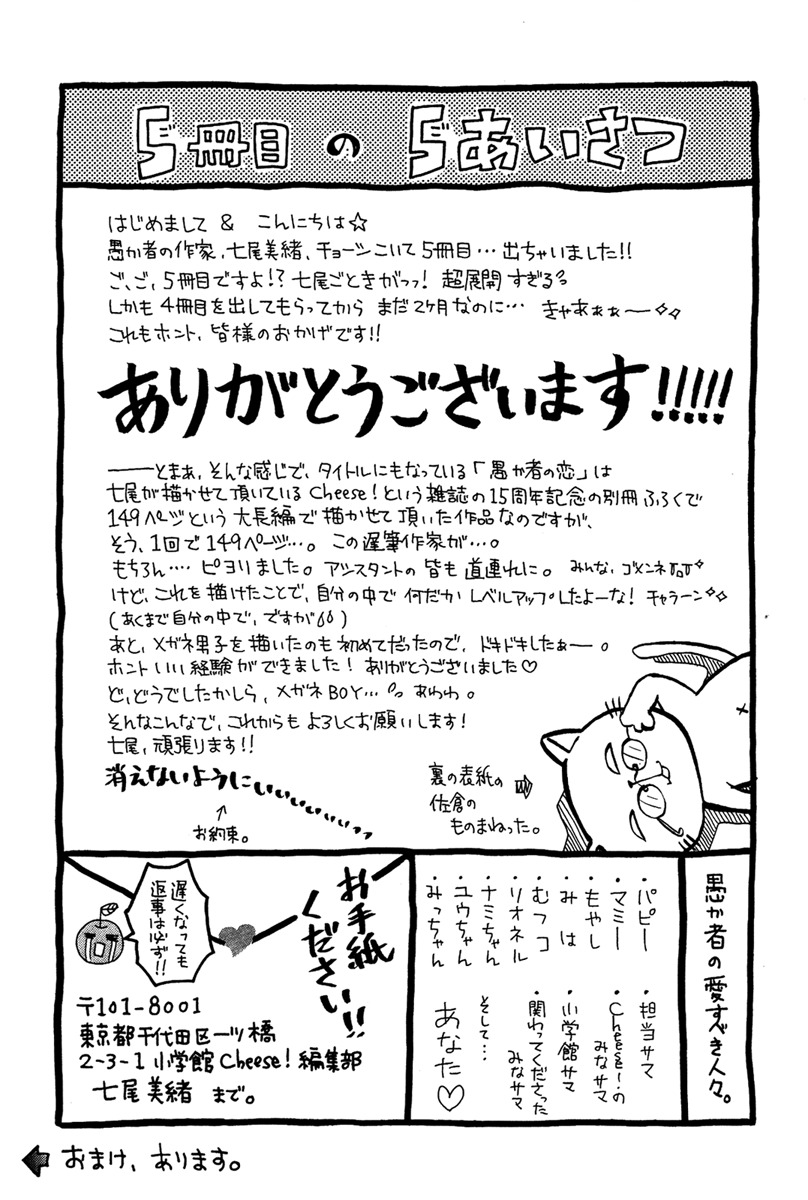 5冊目の5あいさつ
はじめまして & こんにちは☆
愚か者の作家、七尾美緒、チョーシこいて5冊目…出ちゃいました!!
ご、ご、5冊目ですよ!?七尾ごときがっっ! 超展開すぎる
しかも4冊目を出してもらってからまだ2ヶ月なのに… きゃあぁぁー✧✧
これもホント、皆様のおかげです!!
ありがとうございます!!!!!
――とまぁ、そんな感じで、タイトルにもなっている「愚か者の恋」は
七尾が描かせて頂いているCheese!という雑誌の15周年記念の別冊ふろくで
149ページという大長編で描かせて頂いた作品なのですが、
そう、1回で149ページ…。この遅筆作家が…。
もちろん…ピヨりました。アシスタントの皆も道連れに。みんな、ゴメンネ
けど、これを描けたことで、自分の中で何だかレベルアップしたよーな! チャラーン✧✧
(あくまで自分の中で、ですが)
あと、メガネ男子を描いたのも初めてだったので、ドキドキしたぁー。
ホントいい経験ができました! ありがとうございました♡
ど、どうでしたかしら、メガネBOY… あわわ。
そんなこんなで、これからもよろしくお願いします!
七尾、頑張ります!!
消えないようにいぃぃぃぃぃ…
↑
お約束。
裏の表紙の
佐倉の
ものまねった。
愚か者の愛すべき人々。
・パピー
・マミー
・もやし
・みは
・むつコ
・リオネル
・ナミちゃん
・ユウちゃん
・みっちゃん
・担当サマ
・Cheese!の
みなサマ
・小学館サマ
・関わってくださった
みなサマ
そして…
あなた♡
お手紙
ください!!
遅くなっても
返事は必ず!!
〒101-8001
東京都千代田区一ツ橋
2-3-1 小学館Cheese!編集部
七尾美緒 まで。
おまけ、あります。